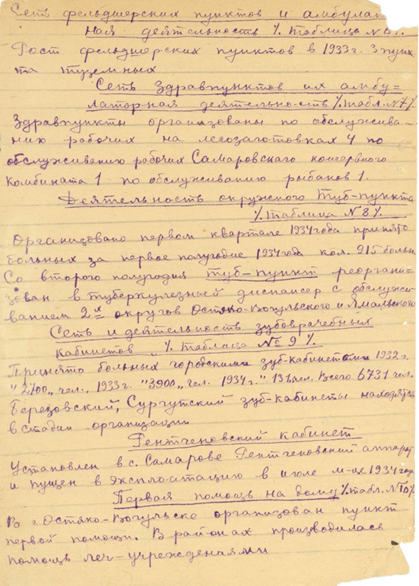 Сеть фельдшерских пунктов и амбулат
ная деятельность % таблица №
Рост фельдшерских пунктов в 1933 г. 3 пунк
та туземных
Сеть здравпунктов их амбу-
латорная деятельность % табл. №7%
Здравпункты организованы по обслужива-
нию рабочих на лесозаготовках 4 по
обслуживанию рабочих Самаровского консервного
комбината 1 по обслуживанию рыбаков 1.
Деятельность окружного Туб-пункта
% таблица №8%
Организовано первом квартале 1934 года принято
больных за первое полугодие 1934 года кол. 915 больн.
Со второго полугодия Туб-пункт реоргани-
зован в туберкулезный диспансер с обслужи-
ванием 2х округов Остяко-Вогульского и Ямальского
Сеть и деятельность зубоврачебных
кабинетов % таблица №9%
Принято больных городскими зуб-кабинетами 1932 г.
"2700" чел. 1933 г. "3900" чел. 1934 г. " чел. Всего 6731 чел.
Березовский, Сургутский зуб-кабинеты находятся
в стадии организации
Рентгеновский кабинет
Установлен в с. Самарове Рентгеновский аппарат
и пущен в эксплоатацию в июле м-це 1934 год
Первая помощь на дому % табл. №10%
В Остяко-Вогульске организован пункт
первой помощи. В районах производилась
помощь леч-учреждениями